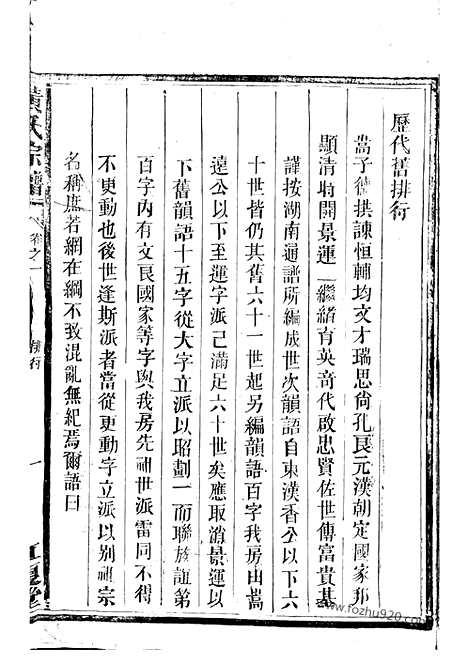 歷代舊排行
嵩子德拱諫恒輔均文才瑞思尙孔良元漢朝定國家邦
顯清時開景運一繼緒有英奇代啟忠賢佐世傳富貴基
謹按湖南通譜所編成世次韻語自東漢香公以下六
十世皆仍其舊六十一世起另編韻語百字我房由嵩
遠公以下至運字派已滿足六十世矣應取消景運以
下舊韻語十五字從大字立派以昭劃一而聯族誼第
百字內有文良國家等字與我房先祖世派雷同不得
不更動也後世逢斯派者當從更動字立派以別祖宗
名稱庶若網在綱不致混亂無紀焉爾語曰
黃氏宗譜
卷之一
排行
一
江夏堂
www.fozhu920.com